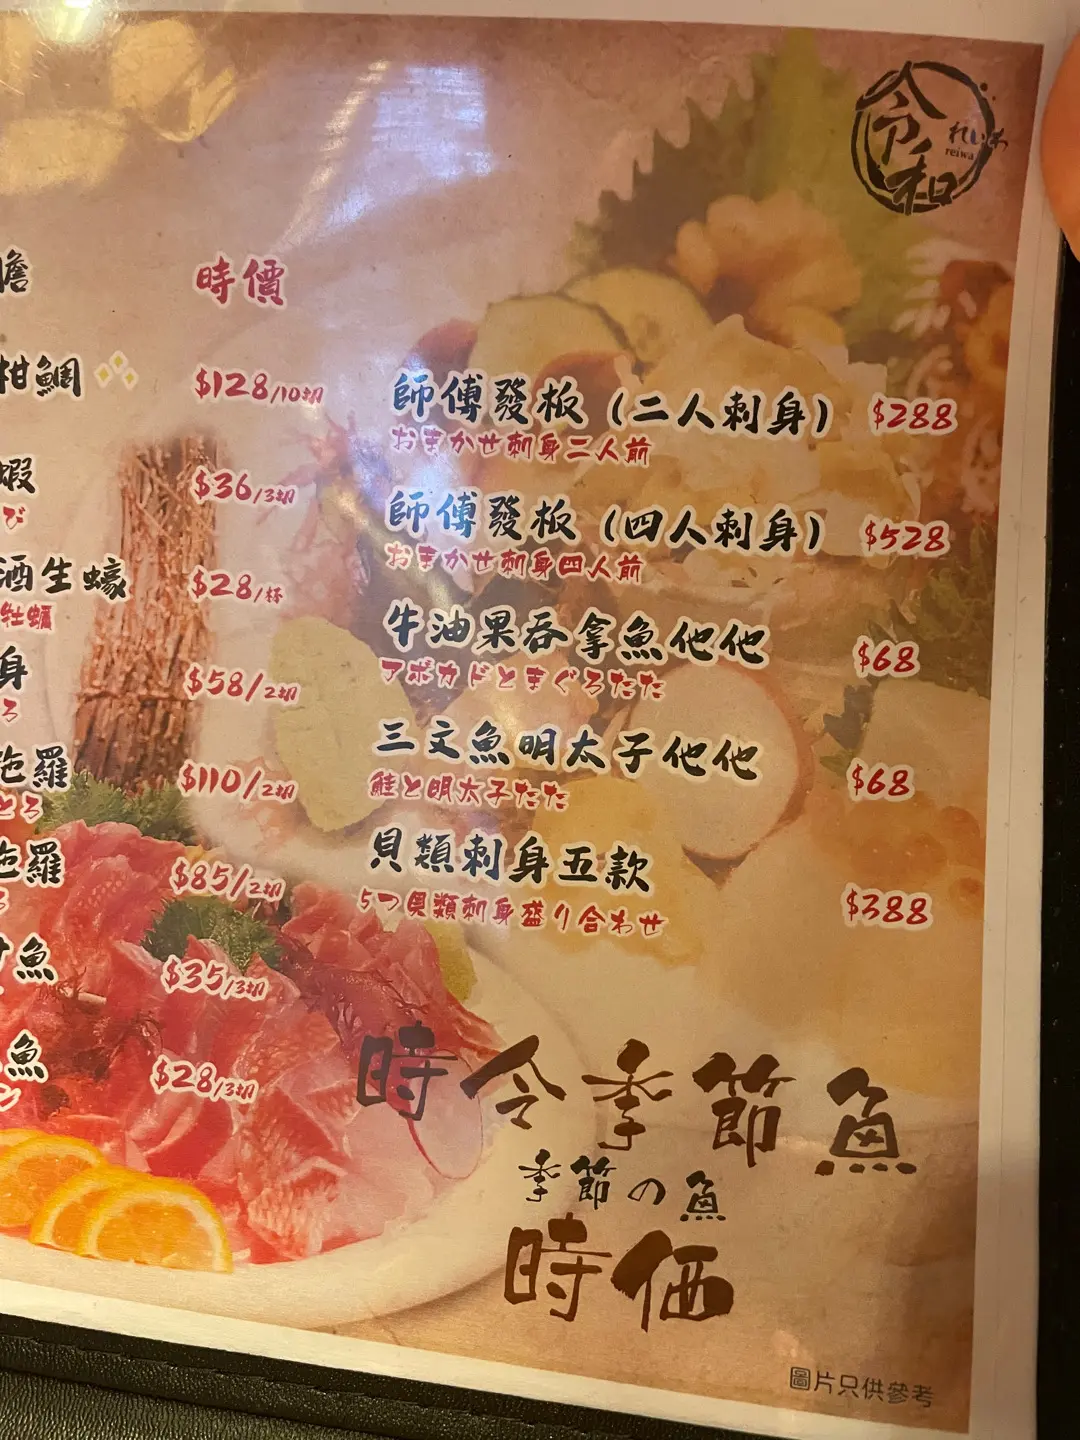 令和
れいわ
reiwa
膽 時價
柑鯛 $128/10切
蝦 $36/3切
び
酒生蠔 $28/杯
牡蠣
身 $58/2切
ろ
拖羅 $110/2切
とろ
拖羅 $85/2切
ろ
魚 $35/3切
魚 $28/3切
ン
師傅發板（二人刺身） $288
おまかせ刺身二人前
師傅發板（四人刺身） $528
おまかせ刺身四人前
牛油果吞拿魚他他 $68
アボカドとまぐろたた
三文魚明太子他他 $68
鮭と明太子たた
貝類刺身五款 $388
5つ貝類刺身盛り合わせ
時令季節魚
季節の魚
時価
圖片只供參考